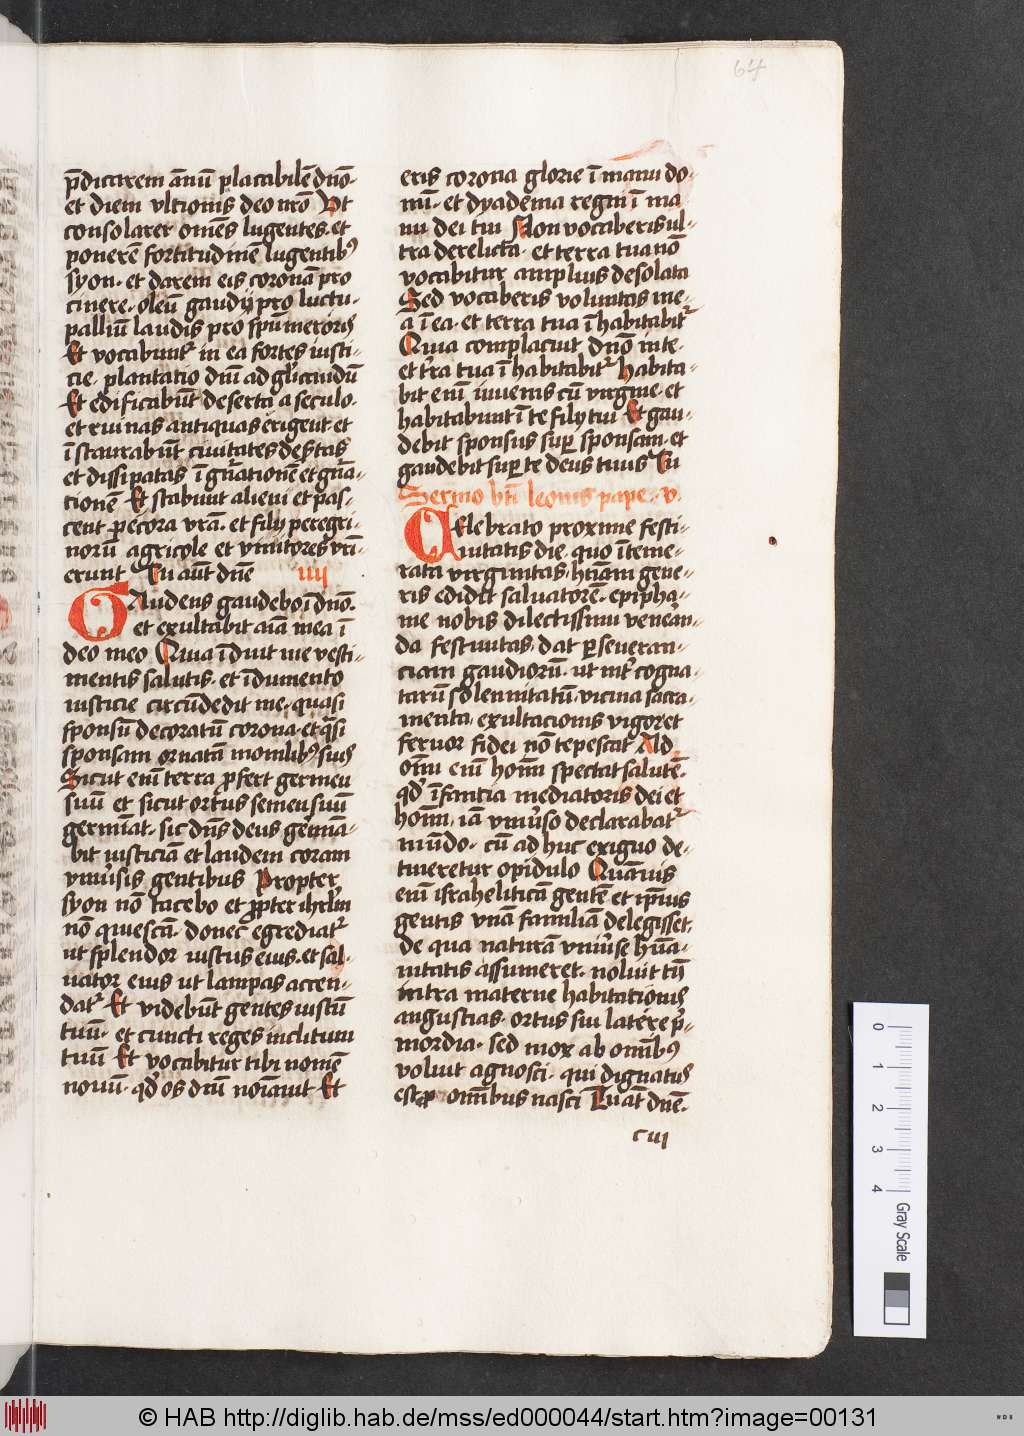 64
p̄dicarem ānū placabilē dn̄o·
et diem vltionis deo nr̄o Vt
consolarer om̄es lugentes· et
ponerē fortitudinē lugentibꝰ
syon· et darem eis coronā pro
cinere· oleū gaudij pro luctu·
palliū laudis pro sp̄u meroris
Et vocabunt᷑ in ea fortes iusti-
cie· plantatio dn̄i ad gl̓icandū
Et edificabūt deserta a seculo·
et ruinas antiquas erigent· et
īstaurabūt ciuitates dēstas
et dissipatas ī gn̄ationē et gn̄a-
cionē Et stabunt alieni et pas-
cent pecora vr̄a· et filij peregri-
norū agricole et vinitores vr̄i
erunt Tu aūt dn̄e iiij
GAudens gaudebo ī dn̄o·
et exultabit aīa mea ī
deo meo Quia īduit me vesti-
mentis salutis· et īdumento
iusticie circūdedit me· quasi
sponsū decoratū corona· et q̄si
sponsam ornatā monilibꝰ suis
Sicut enī terra profert germen
suū et sicut ortus semen suū
germīat· sic dn̄s deus germīa-
bit iusticiā et laudem coram
vniu̓sis gentibus Propter
syon nō tacebo et propter ihrl̄m
nō quiescā· donec egrediat᷑
ut splendor iustus eius· et sal-
uator eius ut lampas accen-
dat᷑ Et videbūt gentes iustū
tuū· et cuncti reges inclitum
tuū Et vocabitur tibi nomē
nouū· qd̓ os dn̄i noīauit Et
eris corona glorie ī manu do-
mī· et dyadema regni ī ma
nu dei tui Non vocaberis ul-
tra derelicta· et terra tua nō
vocabitur amplius desolata
Sed vocaberis voluntas me-
a ī ea· et terra tua īhabitabit᷑
Quia complacuit dn̄o in te·
et t̓ra tua īhabitabit᷑ habita-
bit enī iuuenis cū virgine· et
habitabunt ī te filij tui Et gau-
debit sponsus sup̱ sponsam· et
gaudebit sup̱ te deus tuus Tu
Sermo bt̄i leonis pape· v·
CElebrato proxime festi-
uitatis die· quo īteme-
rata virginitas· hūani gene-
ris edidit saluatorē· epipha-
nie nobis dilectissimi veneran-
da festiuitas· dat p̱seueran-
ciam gaudiorū· ut int̓ cogna-
tarū solennitatū· vicina sacra-
menta· exultacionis vigor et
feruor fidei nō tepescat Ad
om̄i enī hom̄ spectat salutē·
qd̓ īfantia mediatoris dei et
hom̄· iā vniu̓so declarabat᷑
mūdo· cū adhuc exiguo de-
tineretur opidulo Quāuis
enī israheliticā gentē et ip̄ius
gentis vnā familiā delegisset·
de qua naturā vniu̓se hūa-
nitatis assumeret· noluit tn̄
intra materne habitationis
angustias· ortus sui latere p̓-
mordia· sed mox ab om̄ibꝰ
voluit agnosci· qui dignatus
est om̄ibus nasci Tu aūt dn̄e·
cui
0
1
2
3
4
Gray Scale
© HAB http://diglib.hab.de/mss/ed000044/start.htm?image=00131